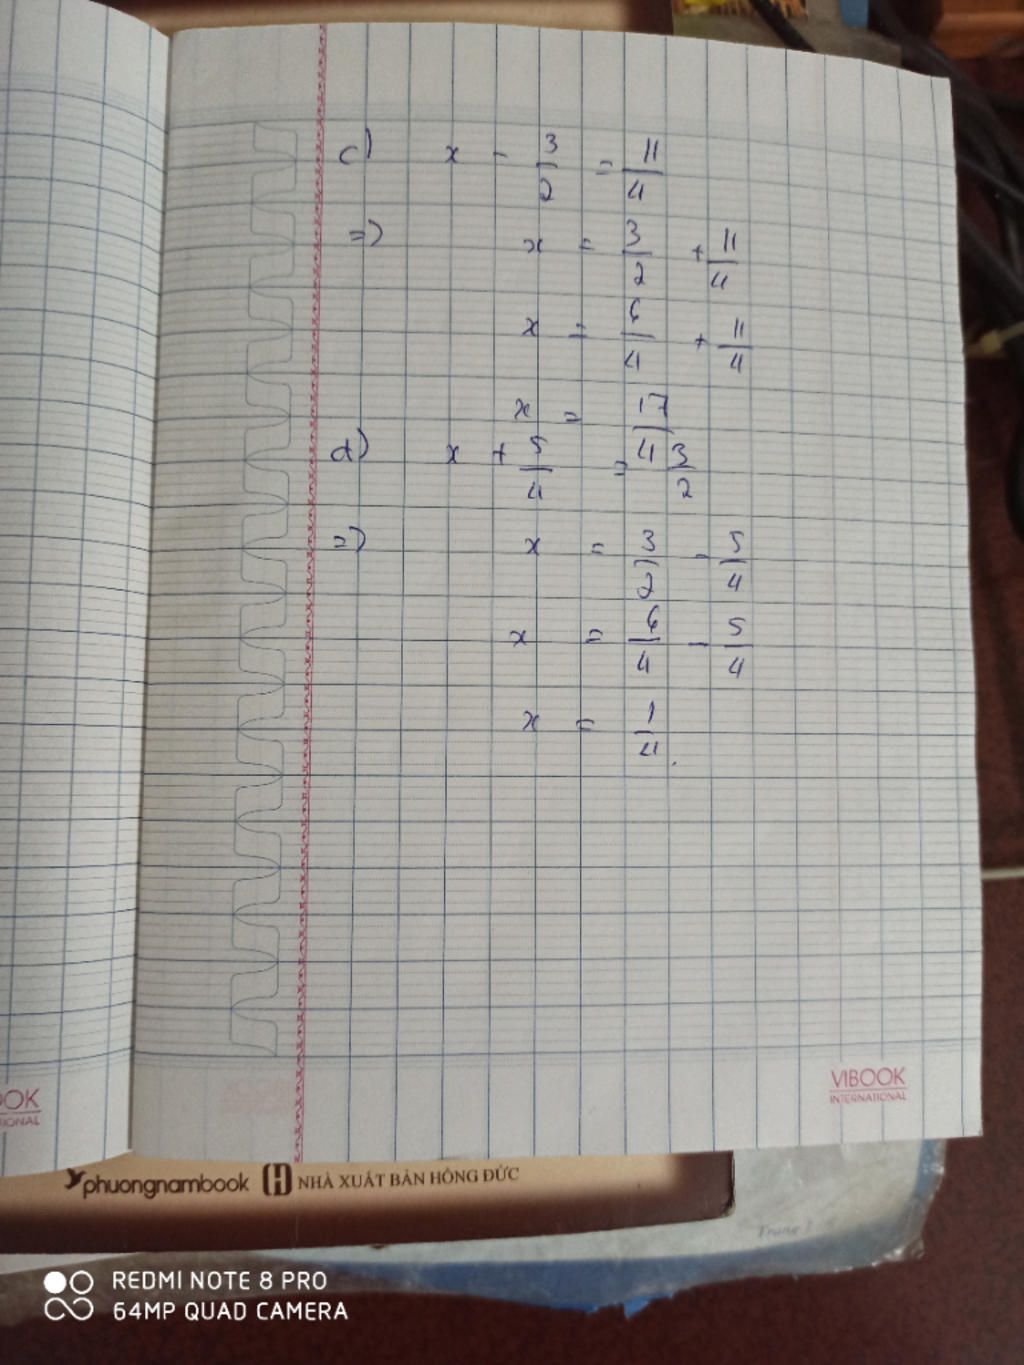 c) x - 3/2 = 11/4
=) x = 3/2 + 11/4
x = 6/4 + 11/4
x = 17/4
d) x + 5/4 = 3/2
=) x = 3/2 - 5/4
x = 6/4 - 5/4
x = 1/4.
VIBOOK
INTERNATIONAL
OOK
IONAL
phuongnambook NHÀ XUẤT BẢN HỒNG ĐỨC
REDMI NOTE 8 PRO
64MP QUAD CAMERA